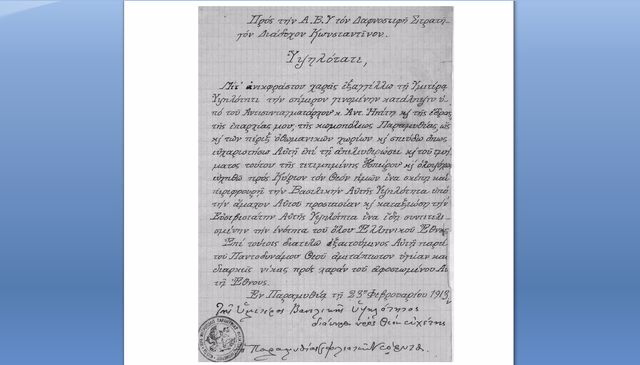 Πρὸς τὴν Α.Β.Υ τὸν Δαφνοστεφῆ Στρατη-
γόν Διάδοχον Κωνσταντῖνον.
Ὑψηλότατε,
Μετ' ἀνεκφράστου χαρᾶς ἐξαγγέλλω τῇ Ὑμετέρᾳ
Ὑψηλότητι τὴν σήμερον γενομένην κατάληψιν ὑ-
πὸ τοῦ Ἀντισυνταγματάρχου κ. Ἀντ. Ἠπίτη κ τῆς ἕδρας
τῆς ἐπαρχίας μου, τῆς κωμοπόλεως Παραμυθίας, ὡς
κ τῶν πέριξ ὀθωμανικῶν χωρίων κ σπεύδω ὅπως
εὐχαριστήσω Αὐτῇ ἐπὶ τῇ ἀπελευθερώσει κ τοῦ τμή-
ματος τούτου τῆς τετιμημένης Ἠπείρου κ
πρὸς Κύριον τὸν Θεὸν ἡμῶν ἵνα σκέπῃ καὶ
περιφρουρῇ τὴν Βασιλικὴν Αὐτῆς Ὑψηλότητα ὑπὸ
τὴν ἄμαχον Αὐτοῦ προστασίαν κ καταξιώσῃ τὴν
Αὐτῆς Ὑψηλότητα ἵνα ἴδῃ συντετελε-
σμένην τὴν ἑνότητα τοῦ ὅλου Ἑλληνικοῦ Ἔθνους.
Ἐπὶ τούτοις διατελῶ ἐξαιτούμενος Αὐτῇ παρὰ
τοῦ Παντοδυνάμου Θεοῦ ἀμετάπτωτον ὑγείαν καὶ
διαρκεῖς νίκας πρὸς χαρὰν τοῦ ἀφοσιωμένου Αὐ-
τῇ Ἔθνους.
Ἐν Παραμυθίᾳ τῇ 23ῃ Φεβρουαρίου 1913
Τῆς Ὑμετέρας Βασιλικῆς Ὑψηλότητος
διάπυρος πρὸς Θεὸν εὐχέτης
Παραμυθίας